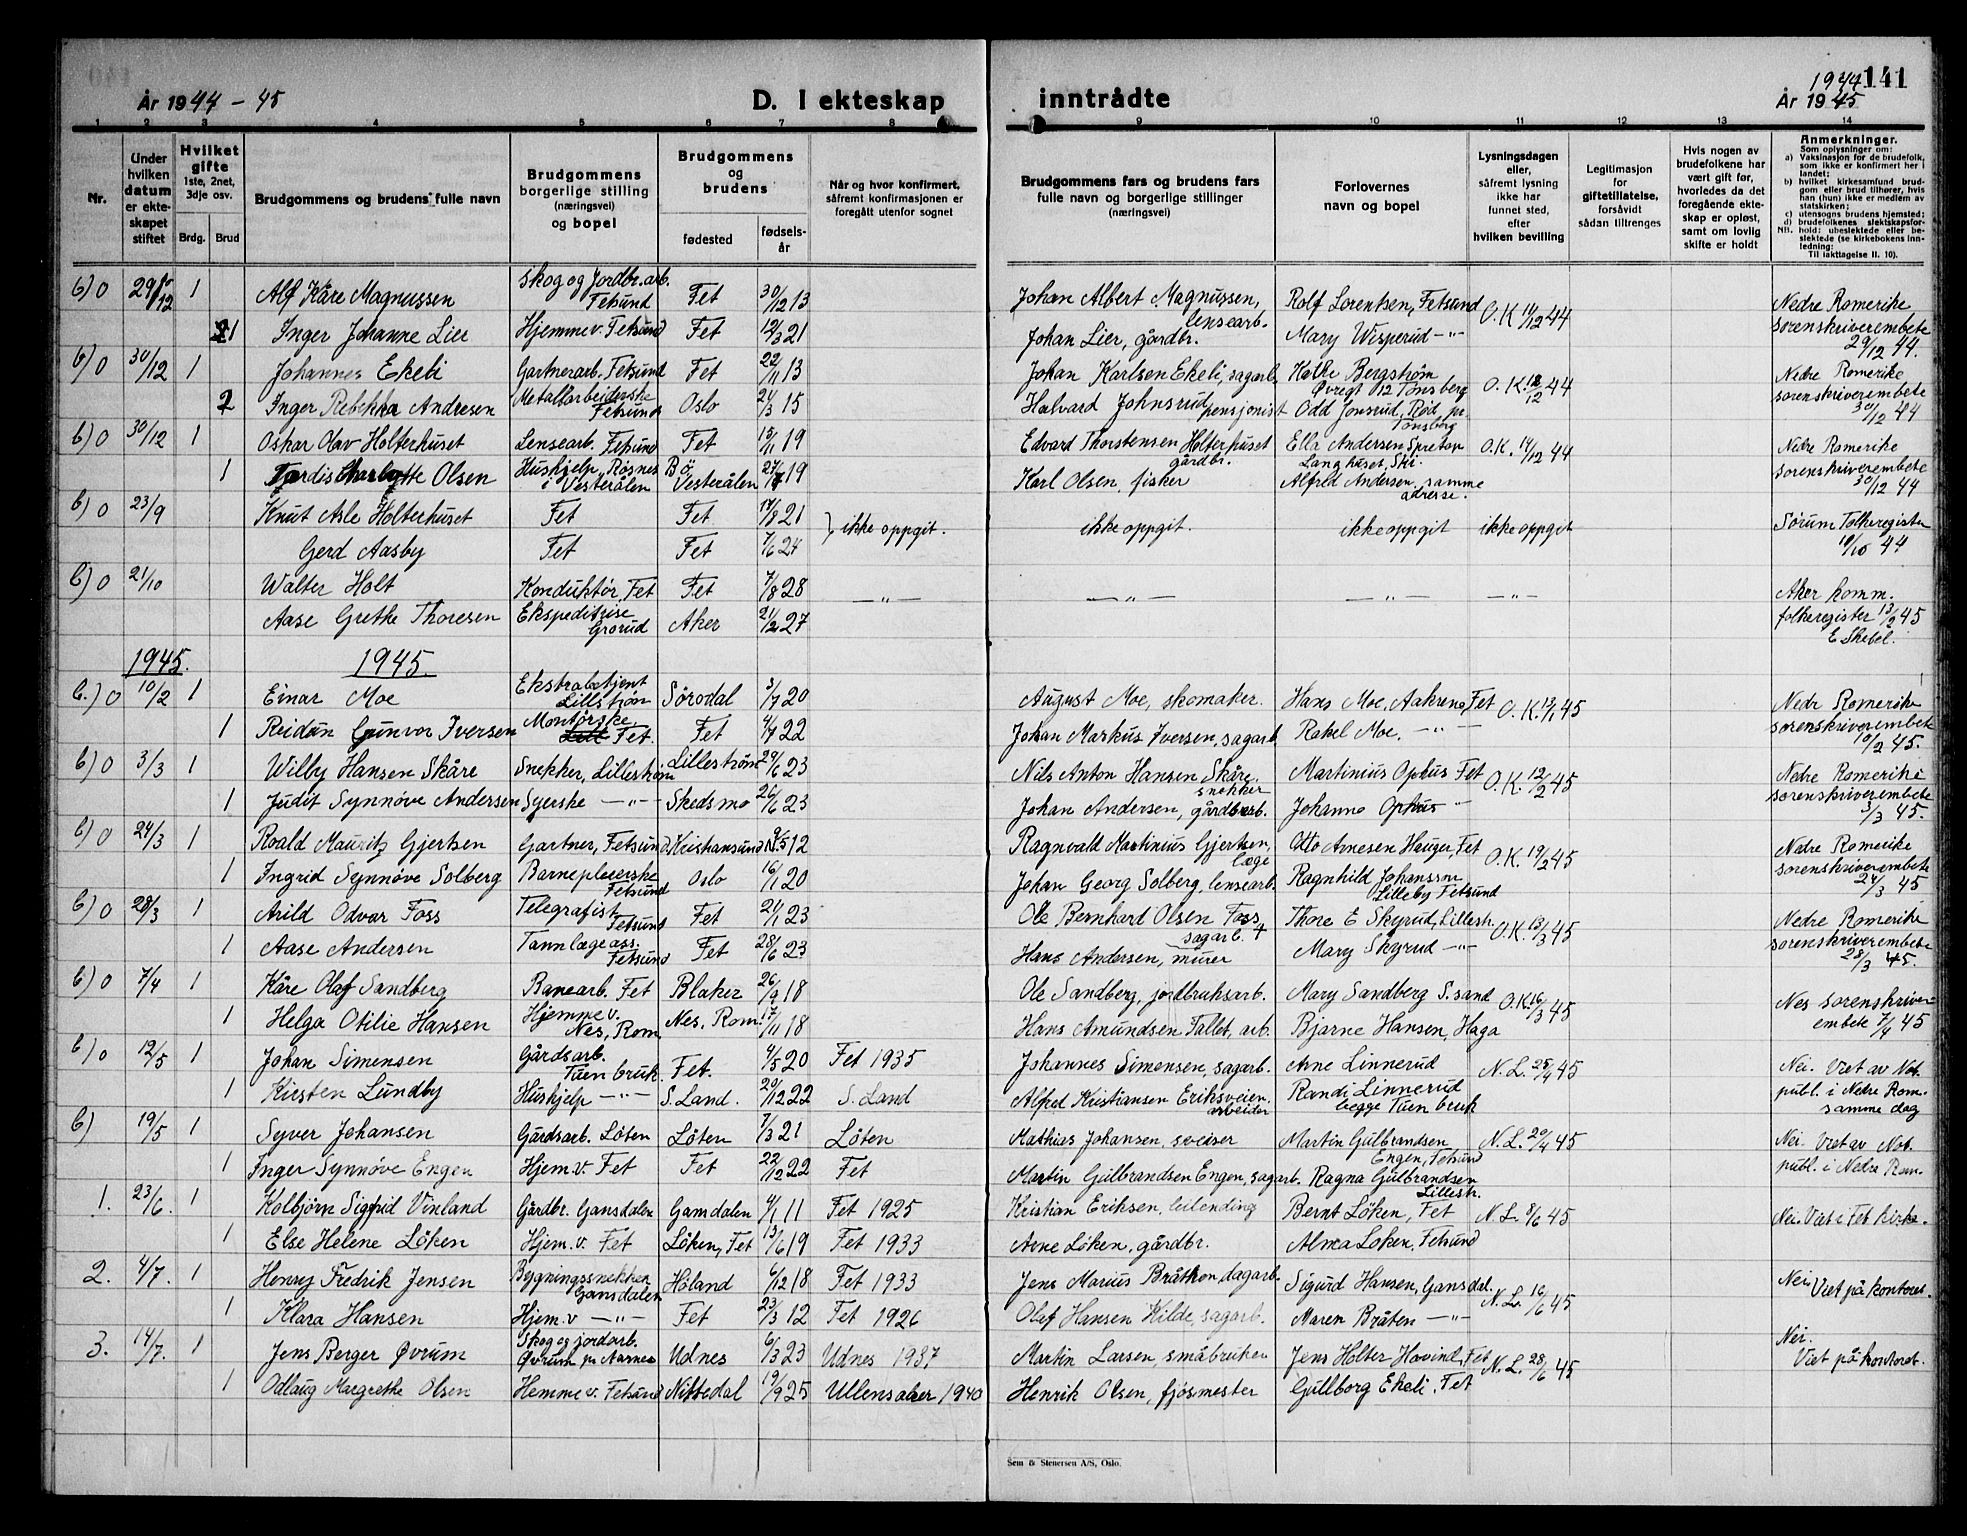 År 1944 - 45
D. I ekteskap
inntrådte
1944
141
År 1945
1 2 3 4 5 6 7 8 9 10 11 12 13 14
Nr.
Under hvilken datum er ekteskapet stiftet
Hvilket gifte
1ste, 2net, 3dje osv.
Brdg. Brud
Brudgommens og brudens fulle navn
Brudgommens borgerlige stilling (næringsvei) og bopel
Brudgommens og brudens
fødested
fødselsår
Når og hvor konfirmert, såfremt konfirmasjonen er foregått utenfor sognet
Brudgommens fars og brudens fars fulle navn og borgerlige stillinger (næringsvei)
Forlovernes navn og bopel
Lysningsdagen eller, såfremt lysning ikke har funnet sted, efter hvilken bevilling
Legitimasjon for giftetillatelse, forsåvidt sådan tiltrenges
Hvis nogen av brudefolkene har vært gift før, hvorledes da det foregående ekteskap er opløst, samt om lovlig skifte er holdt
Anmerkninger.
Som oplysninger om:
a) Vaksinasjon for de brudefolk, som ikke er konfirmert her i landet;
b) hvilket kirkesamfund brudgom eller brud tilhører, hvis han (hun) ikke er medlem av statskirken;
c) utensogns brudens hjemsted;
d) brudefolkenes slektskapsforhold: ubeslektede eller beslektede (se kirkebokens innledning:
NB. Til iakttagelse II. 10).
b) 0 29/12 1 Alf Kåre Magnussen Skog og Jordbr. arb. Fetsund Fet 30/12 13 Johan Albert Magnussen, lensearb. Rolf Lorentsen, Fetsund O.K 14/12 44 Nedre Romerike
1 Inger Johanne Lier Hjemme v. Fetsund Fet 12/3 21 Johan Lier, gårdbr. Mary Wisperud -"- sorenskriverembete 29/12 44.
b) 0 30/12 1 Johannes Ekeli Gartnerarb. Fetsund Fet 22/11 13 Johan Karlsen Ekeli, sagarb. Käthe Bergstrøm Øvregt 12 Tønsberg O.K. 12/12 44 Nedre Romerike
2 Inger Rebekka Andresen Metallarbeiderske Fetsund Oslo 24/3 15 Halvard Johnsrud pensjonist Odd Jonsrud, Rød pr. Tønsberg sorenskriverembete 30/12 44
b) 0 30/12 1 Oskar Olav Holterhuset Lensearb. Fetsund Fet 15/11 19 Edvard Thorstensen Holterhuset gårdbr. Ella Andersen Langhuset, Ski. O.K. 14/12 44 Nedre Romerike
1 Tordis Charlotte Olsen Hushjelp, Røsnes i Vesterålen Bö Vesterålen 27/7 19 Karl Olsen, fisker Alfred Andersen, samme adresse. sorenskriverembete 30/12 44
b) 0 23/9 Knut Asle Holterhuset Fet Fet 17/8 21 ikke oppgit. ikke oppgit. ikke oppgit ikke oppgit Sørum Folkeregister 10/10 44
Gerd Aasby Fet Fet 7/6 24
b) 0 21/10 Walter Holt Konduktør, Fet Fet 7/8 28 -"- -"- -"- -"- Aker komm.
Aase Grethe Thoresen Ekspeditrise Grorud Aker 21/12 27 folkeregister 13/2 45
E Skebel.
1945. 1945.
b.) 0 10/2 1 Einar Moe Ekstrabetjent Lillestrøm Sörodal 3/7 20 August Moe, skomaker. Hans Moe, Aakrene, Fet O.K. 12/1 45 Nedr Romerike
1 Reidun Gunvor Iversen Montørske, Fet. Fet 4/7 22 Johan Markus Iversen, sagarb. Rakel Moe. -"- sorenskriverembete 10/2 45.
b) 0 3/3 1 Wilby Hansen Skåre Snekker, Lillestrøm Lillestrøm 29/6 23 Nils Anton Hansen Skåre. snekker Martinius Ophus Fet O.K. 12/2 45 Nedre Romerike
1 Judit Synnöve Andersen Syerske -"- Skedsmo 26/6 23 Johan Andersen, gårdbrarb. Johanne Ophus " sorenskriverembete 3/3 45.
b) 0 24/3 1 Roald Mauritz Gjertsen Gartner, Fetsund Kristiansund N. 9/5 12 Ragnvald Martinius Gjertsen, læge Otto Arnesen Heuger, Fet O.K. 19/2 45 Nedre Romerike
1 Ingrid Synnöve Solberg Barnepleierske Fetsund Oslo 16/1 20 Johan Georg Solberg, lensearb. Ragnhild Johansson Lilleby Fetsund sorenskriverembete 24/3 45
b) 0 28/3 1 Arild Odvar Foss Telegrafist Fetsund Fet 21/1 23 Ole Bernhard Olsen Foss, sagarb. + Thore E Skyrud, Lillestr. O.K. 13/3 45 Nedre Romerike
1 Aase Andersen Tannlægeass. Fetsund Fet 28/6 23 Hans Andersen, murer Mary Skyrud -"- sorenskriverembete 28/3 45.
b) 0 7/4 1 Kåre Olaf Sandberg Banearb. Fet Blaker 26/9 18 Ole Sandberg, jordbruksarb. Mary Sandberg S.sand O.K. 16/3 45 Nes sorenskriver
1 Helga Otilie Hansen Hjemme v. Nes, Rom. Nes, Rom. 17/11 18 Hans Amundsen Fallet, arb. Bjarne Hansen, Haga embete 7/4 45
b) 0 12/5 1 Johan Simensen Gårdsarb. Tuen bruk. Fet. 4/5 20 Fet 1935 Johannes Simensen, sagarb. Arne Linnerud N.L. 25/4 45 Nei. Viet av Not.
1 Kirsten Lundby Hushjelp -"- S. Land. 20/12 22 S. Land Alfred Kristiansen Eriksveien arbeider Randi Linnerud begge Tuen bruk publ. i Nedre Rom. samme dag
b) 19/5 1 Syver Johansen Gårdsarb. Löten Löten 7/3 21 Löten Mathias Johansen, sveiser Martin Gulbrandsen Engen, Fetsund N.L. 20/4 45 Nei. Viet av Not.
1 Inger Synnöve Engen Hjem.v. Fet Fet 22/12 22 Fet Martin Gulbrandsen Engen, sagarb. Ragna Gulbrandsen Lillestr. publ. i Nedre Rom.
1. 23/6. 1 Kolbjörn Sigfrid Vinland Gårdbr. Gansdalen Gamdalen 4/1 11 Fet 1925 Kristian Eriksen, leilending Bernt Löken, Fet N.L. 8/6 45 Nei. Viet i Fet kirke.
1 Else Helene Löken Hjem.v. Fet Löken, Fet 13/6 19 Fet 1933 Arne Löken, gårdbr. Alma Loken, Fetsund
2. 4/7. 1 Henry Fredrik Jensen Bygningssnekker Gansdalen Höland 6/12 18 Fet 1933 Jens Marius Bråthen, dagarb. Sigurd Hansen, Gansdal. N.L. 16/6 45 Nei. Viet på kontoret.
1 Klara Hansen Hjem.v -"- Fet 23/3 12 Fet 1926 Olaf Hansen Kilde, sagarb. Maren Bråten -"-
3. 14/7. 1 Jens Berger Øvrum Skog og jordarb. Øvrum pr Aarnes Udnes 6/3 23 Udnes 1937 Martin Larsen, småbruker Jens Holter Hovind, Fet N.L. 28/6 45 Nei. Viet på kontoret.
1 Odlaug Margrethe Olsen Hemme v. Fetsund Nittedal 19/9 25 Ullensaker 1940 Henrik Olsen, fjösmester Gullborg Ekeli, Fet
Sem & Stenersen A/S, Oslo.